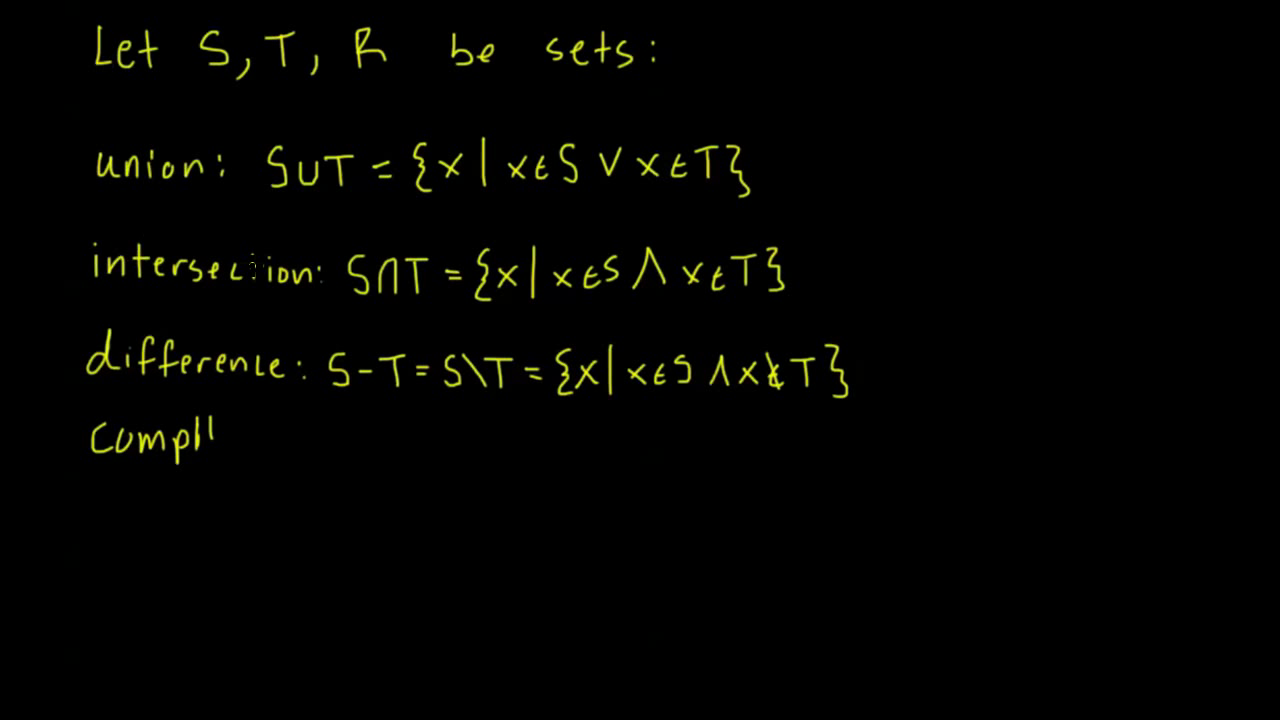 Let S, T, R be sets:
union: S∪T = {x | x∈S ∨ x∈T}
intersection: S∩T = {x | x∈S ∧ x∈T}
difference: S-T = S\T = {x | x∈S ∧ x∉T}